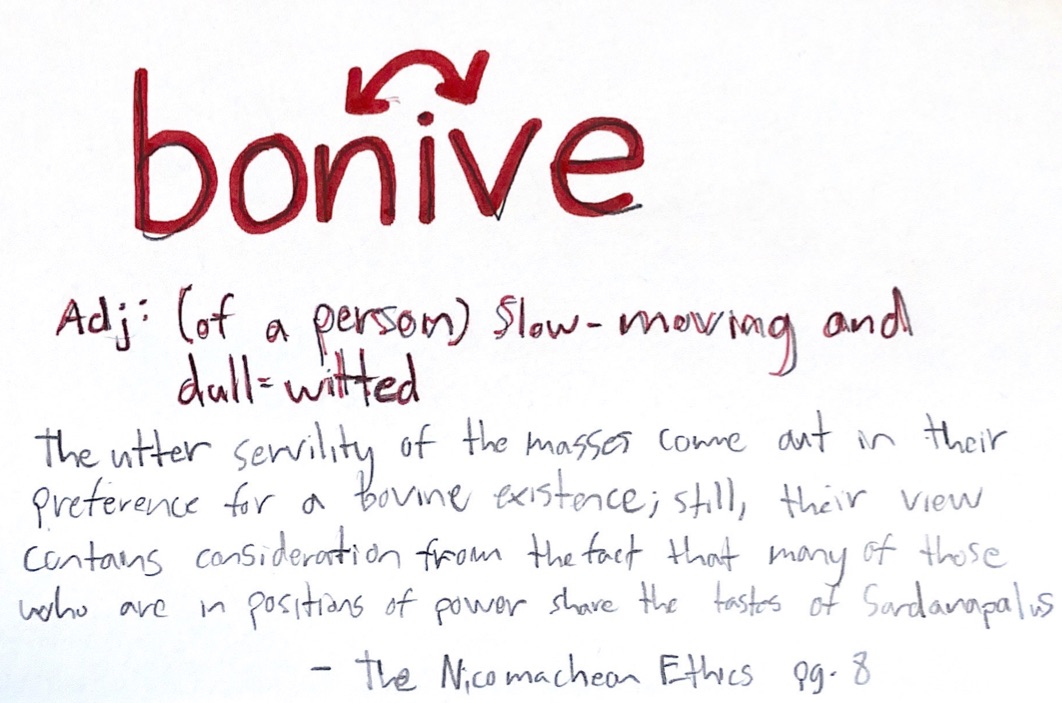 bonive
Adj: (of a person) Slow-moving and
dull=witted
The utter servility of the masses come out in their
preference for a bovine existence; still, their view
contains consideration from the fact that many of those
who are in positions of power share the tastes of Sardanapalus
- The Nicomachean Ethics pg. 8